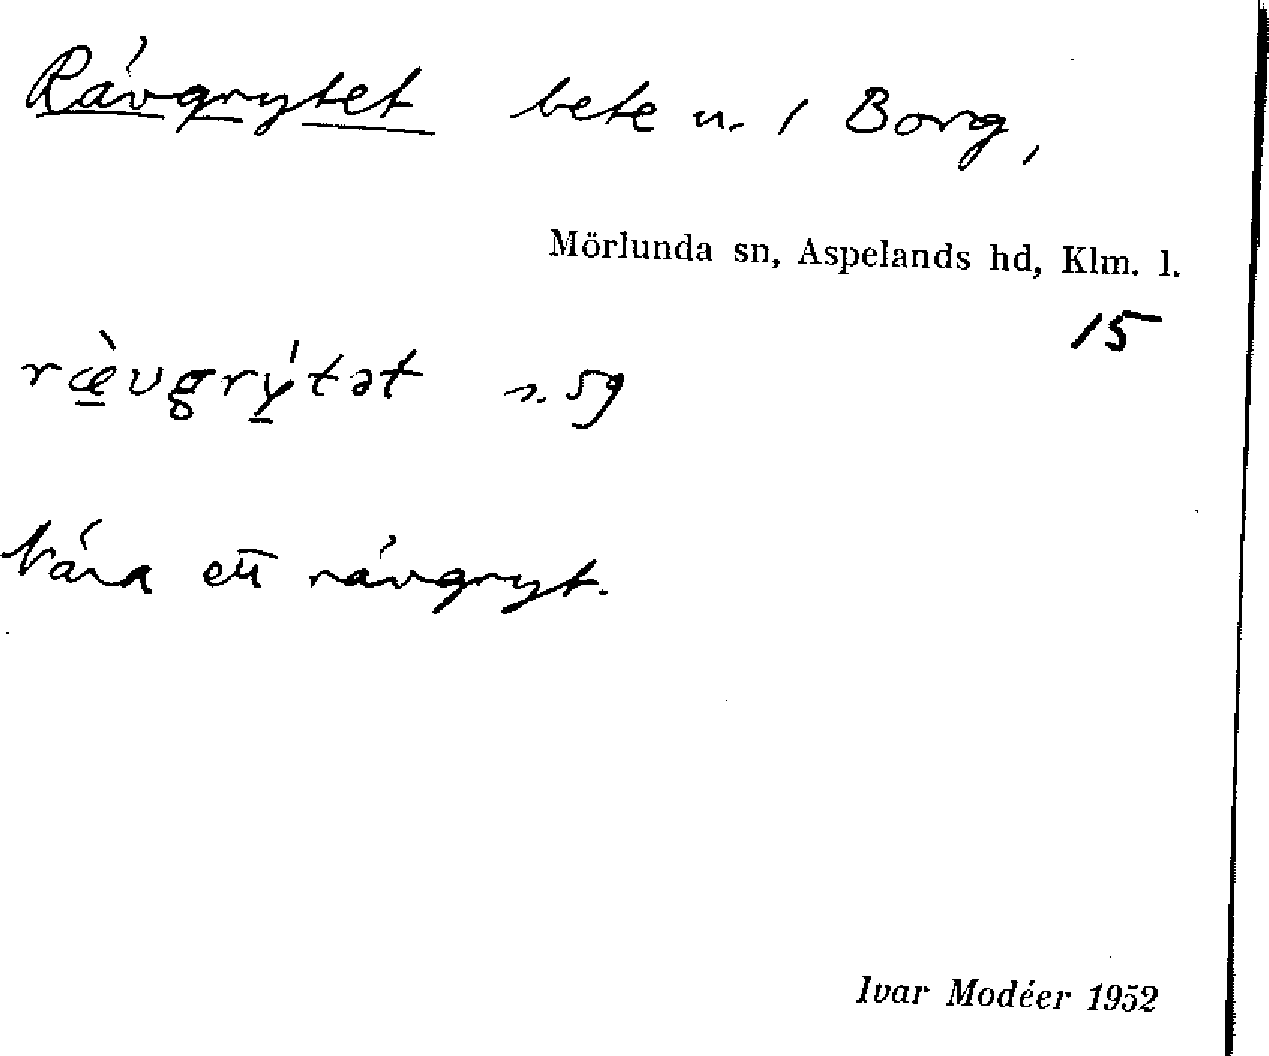 Rävgrytet bete u. / Borg,
Mörlunda sn, Aspelands hd, Klm. l.
15
ræ̀vgrýtət s. 59
Nära ett rävgryt.
Ivar Modéer 1952